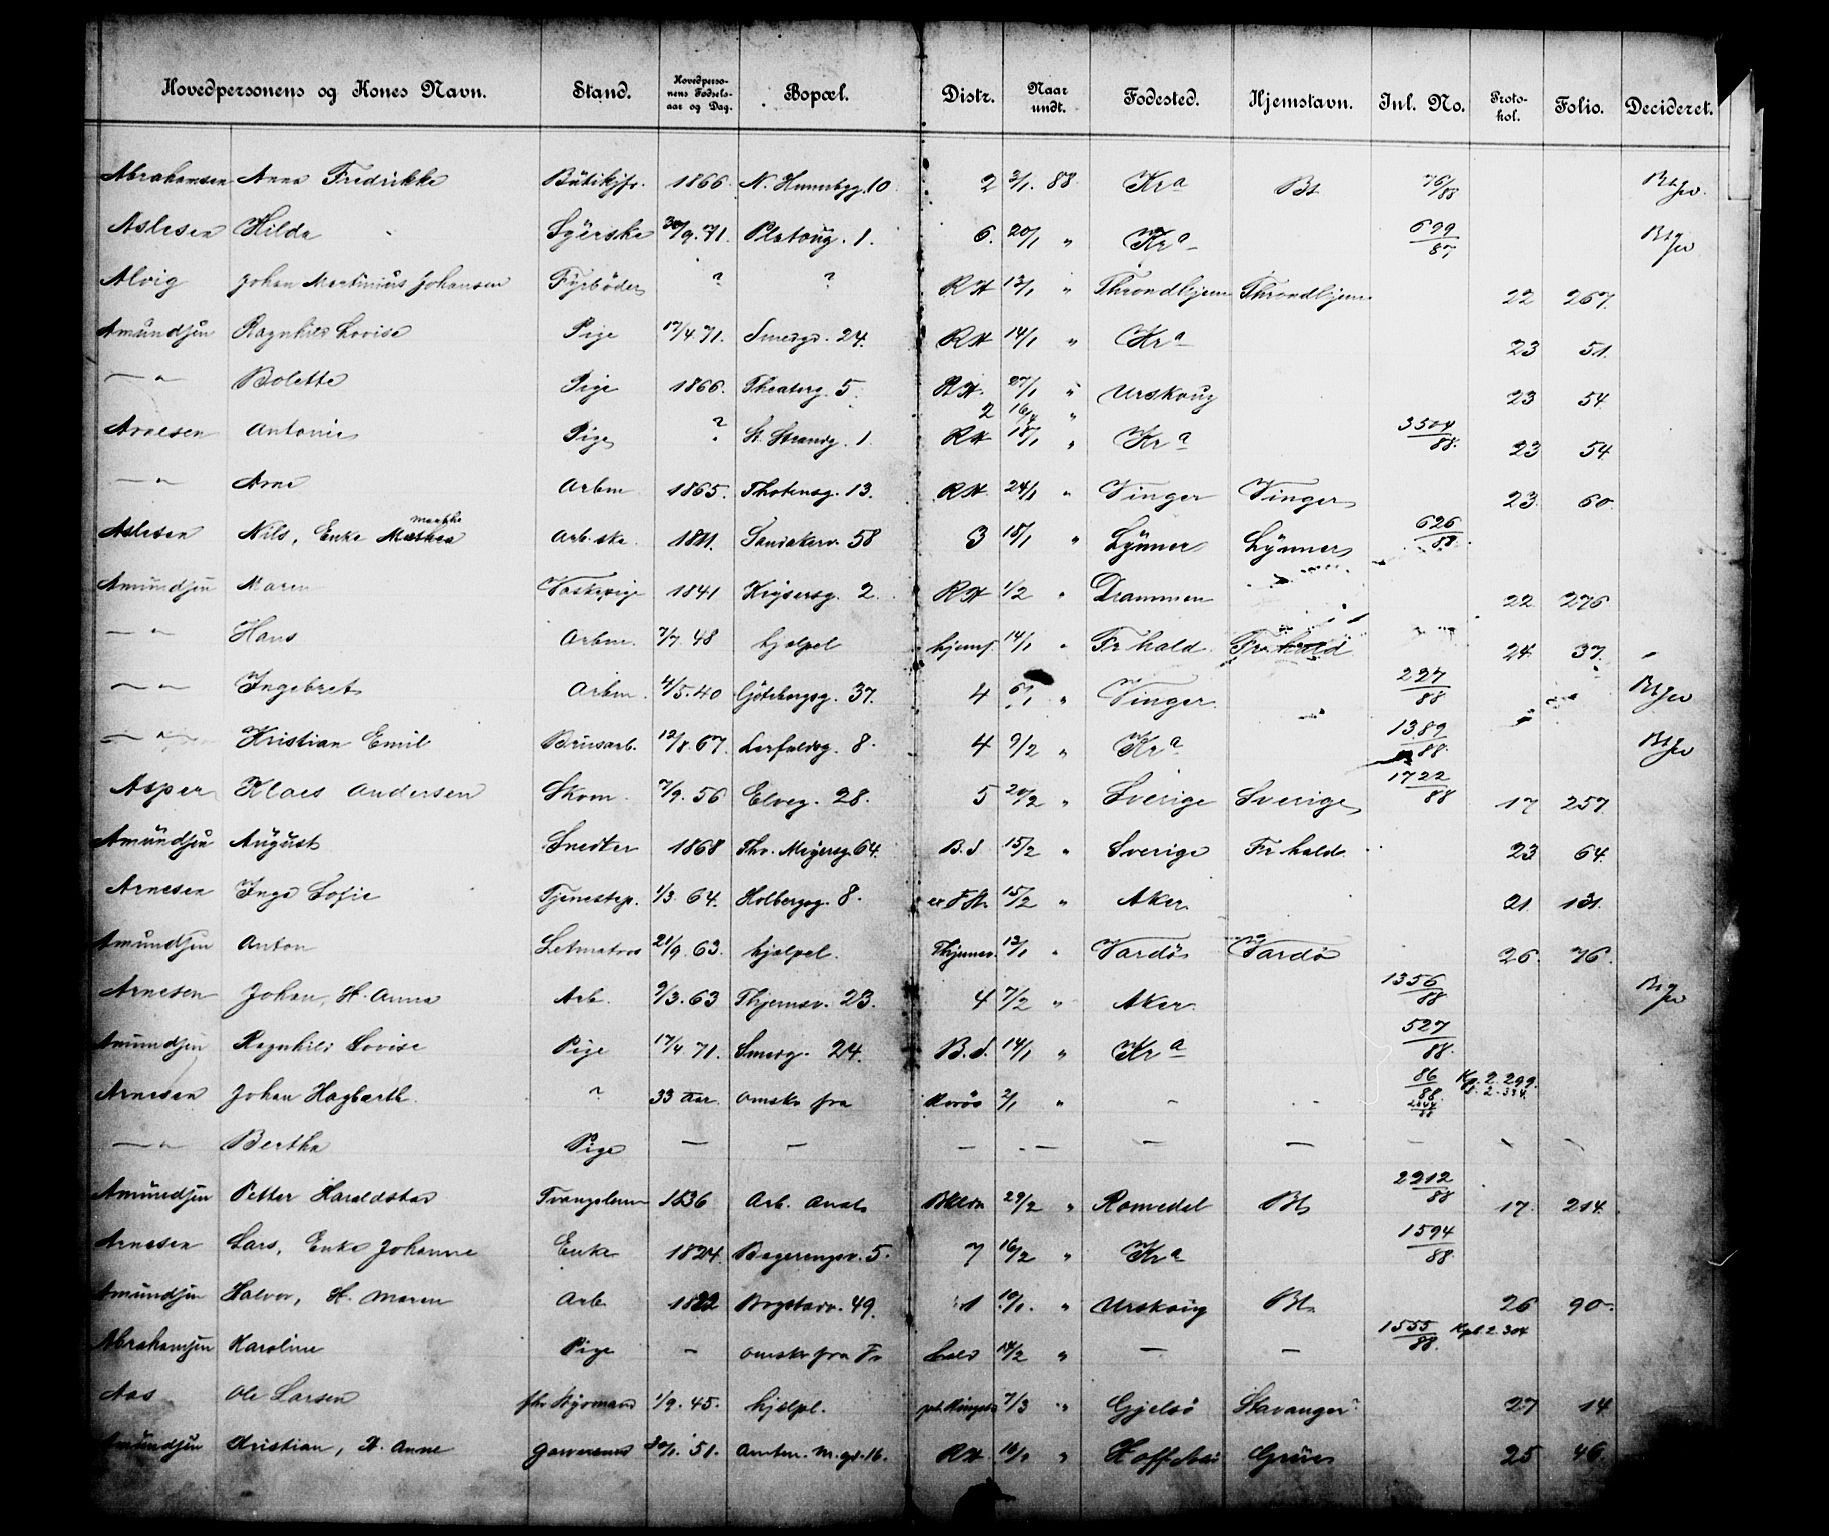 Hovedpersonens og Kones Navn. Stand. Hovedpersonens Fødselsaar og Dag. Bopæl. Distr. Naar undt. Fødested. Hjemstavn. Inl. No. Protokol. Folio. Decideret.
Abrahamsen Anna Fredrikke 1866. 10 2 2/1 88 Kra Bt 76/88
Aslesen Hilda Syerske 30/9.71. Platoug. 1. 6. 20/1 " Kra 699/87
Alvig Johan Martinius Johansen Fyrbøder ? ? RH 13/1 " Throndhjem Throndhjem 22 267.
Amundsen Ragnhild Lovise Pige 17/4.71. Smedgd. 24. RH 14/1 " Kra 23 51.
—"— Bolette Pige 1866. Theaterg. 5. RH. 27/1 " Urskoug 23 54.
2 16/4 "
Arnesen Antonie Pige ? St. Strandg. 1. RH 18/1 " Kra 3504/88. 23 54
—"— Arne Arbm 1865. Thotensg. 13. RH 24/1 " Vinger Vinger 23 60.
Aslesen Nils, Enke Marthe Arb.ske Sandakerv. 58 3 18/1 " Lynner Lynner 626/88
Amundsen Maren Vaskepige 1841 Keysersg. 2. RH 1/2 " Drammen 22 276
—"— Hans Arbm. 7/7.48 hjælpel hjemf. 14/1 " Frhald Frhald 24. 37.
—"— Ingebret Arbm. 4/5.40 Göteborgsg. 37. 4 6/1 " Vinger 227/88
—"— Kristian Emil Brusarb. 12/8.67. 8. 4 9/2 " Kra 1389/88.
Asper Klaes Andersen Skom. 7/9.56 Elveg. 28. 5 20/2 " Sverige Sverige 1722/88 17 257.
Amundsen August Snedker 1868 Thv. Meyersg. 64. B.d. 15/2 " Sverige Frhald. 23 64.
Arnesen Inga Sofie Tjenestep. 1/3.64. Holbergsg. 8. 15/2 " Aker 21. 131.
Amundsen Anton Letmatros 21/9.63. hjælpel. 13/1 " Vardö Vardö 26 76.
Arnesen Johan, H. Anna Arb. 9/3.63 Thjemsv. 23. 4 7/2 " Aker. 1356/88
Amundsen Ragnhild Lovise Pige 17/4.71. Smedg. 24. B.d. 14/1 " Kra 527/88.
Arnesen Johan Hagbarth ? 33 Aar. Omskr fra Horøs 2/1 " 86/88. Kp. 2. 299.
—"— Bertha Pige — — — — — — —
Amundsen Petter Haraldstad 1836 Arb. Anst. 29/2 " Romedal Bt 2212/88 17. 214.
Arnesen Lars, Enke Johanne Enke 1824. 5. 7 16/2 " Kra 1594/88.
Amundsen Halvor, H. Maren Arb. 1822 Bogstadv. 49. 1 10/1. " Urskoug Bt. 26 90.
Abrahamsen Karoline Pige - Omskr fra Fr hald 14/2 " — — 1555/88. Kpl 2. 304
Aas Ole Larsen fhv Styrmand 1/9.45. hjælpl. 7/3 " Gjelsö Stavanger 27 14.
Amundsen Kristian, H. Anne 51. 16. RH 16/1 " Grue 25 46.